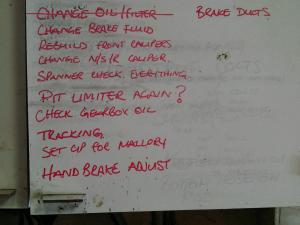 CHANGE OIL/FILTER
BRAKE DUCTS
CHANGE BRAKE FLUID
REBUILD FRONT CALIPERS
CHANGE N/S/R CALIPER.
SPANNER CHECK EVERYTHING
PIT LIMITER AGAIN?
CHECK GEARBOX OIL
TRACKING.
SET UP FOR MALLORY
HANDBRAKE ADJUST